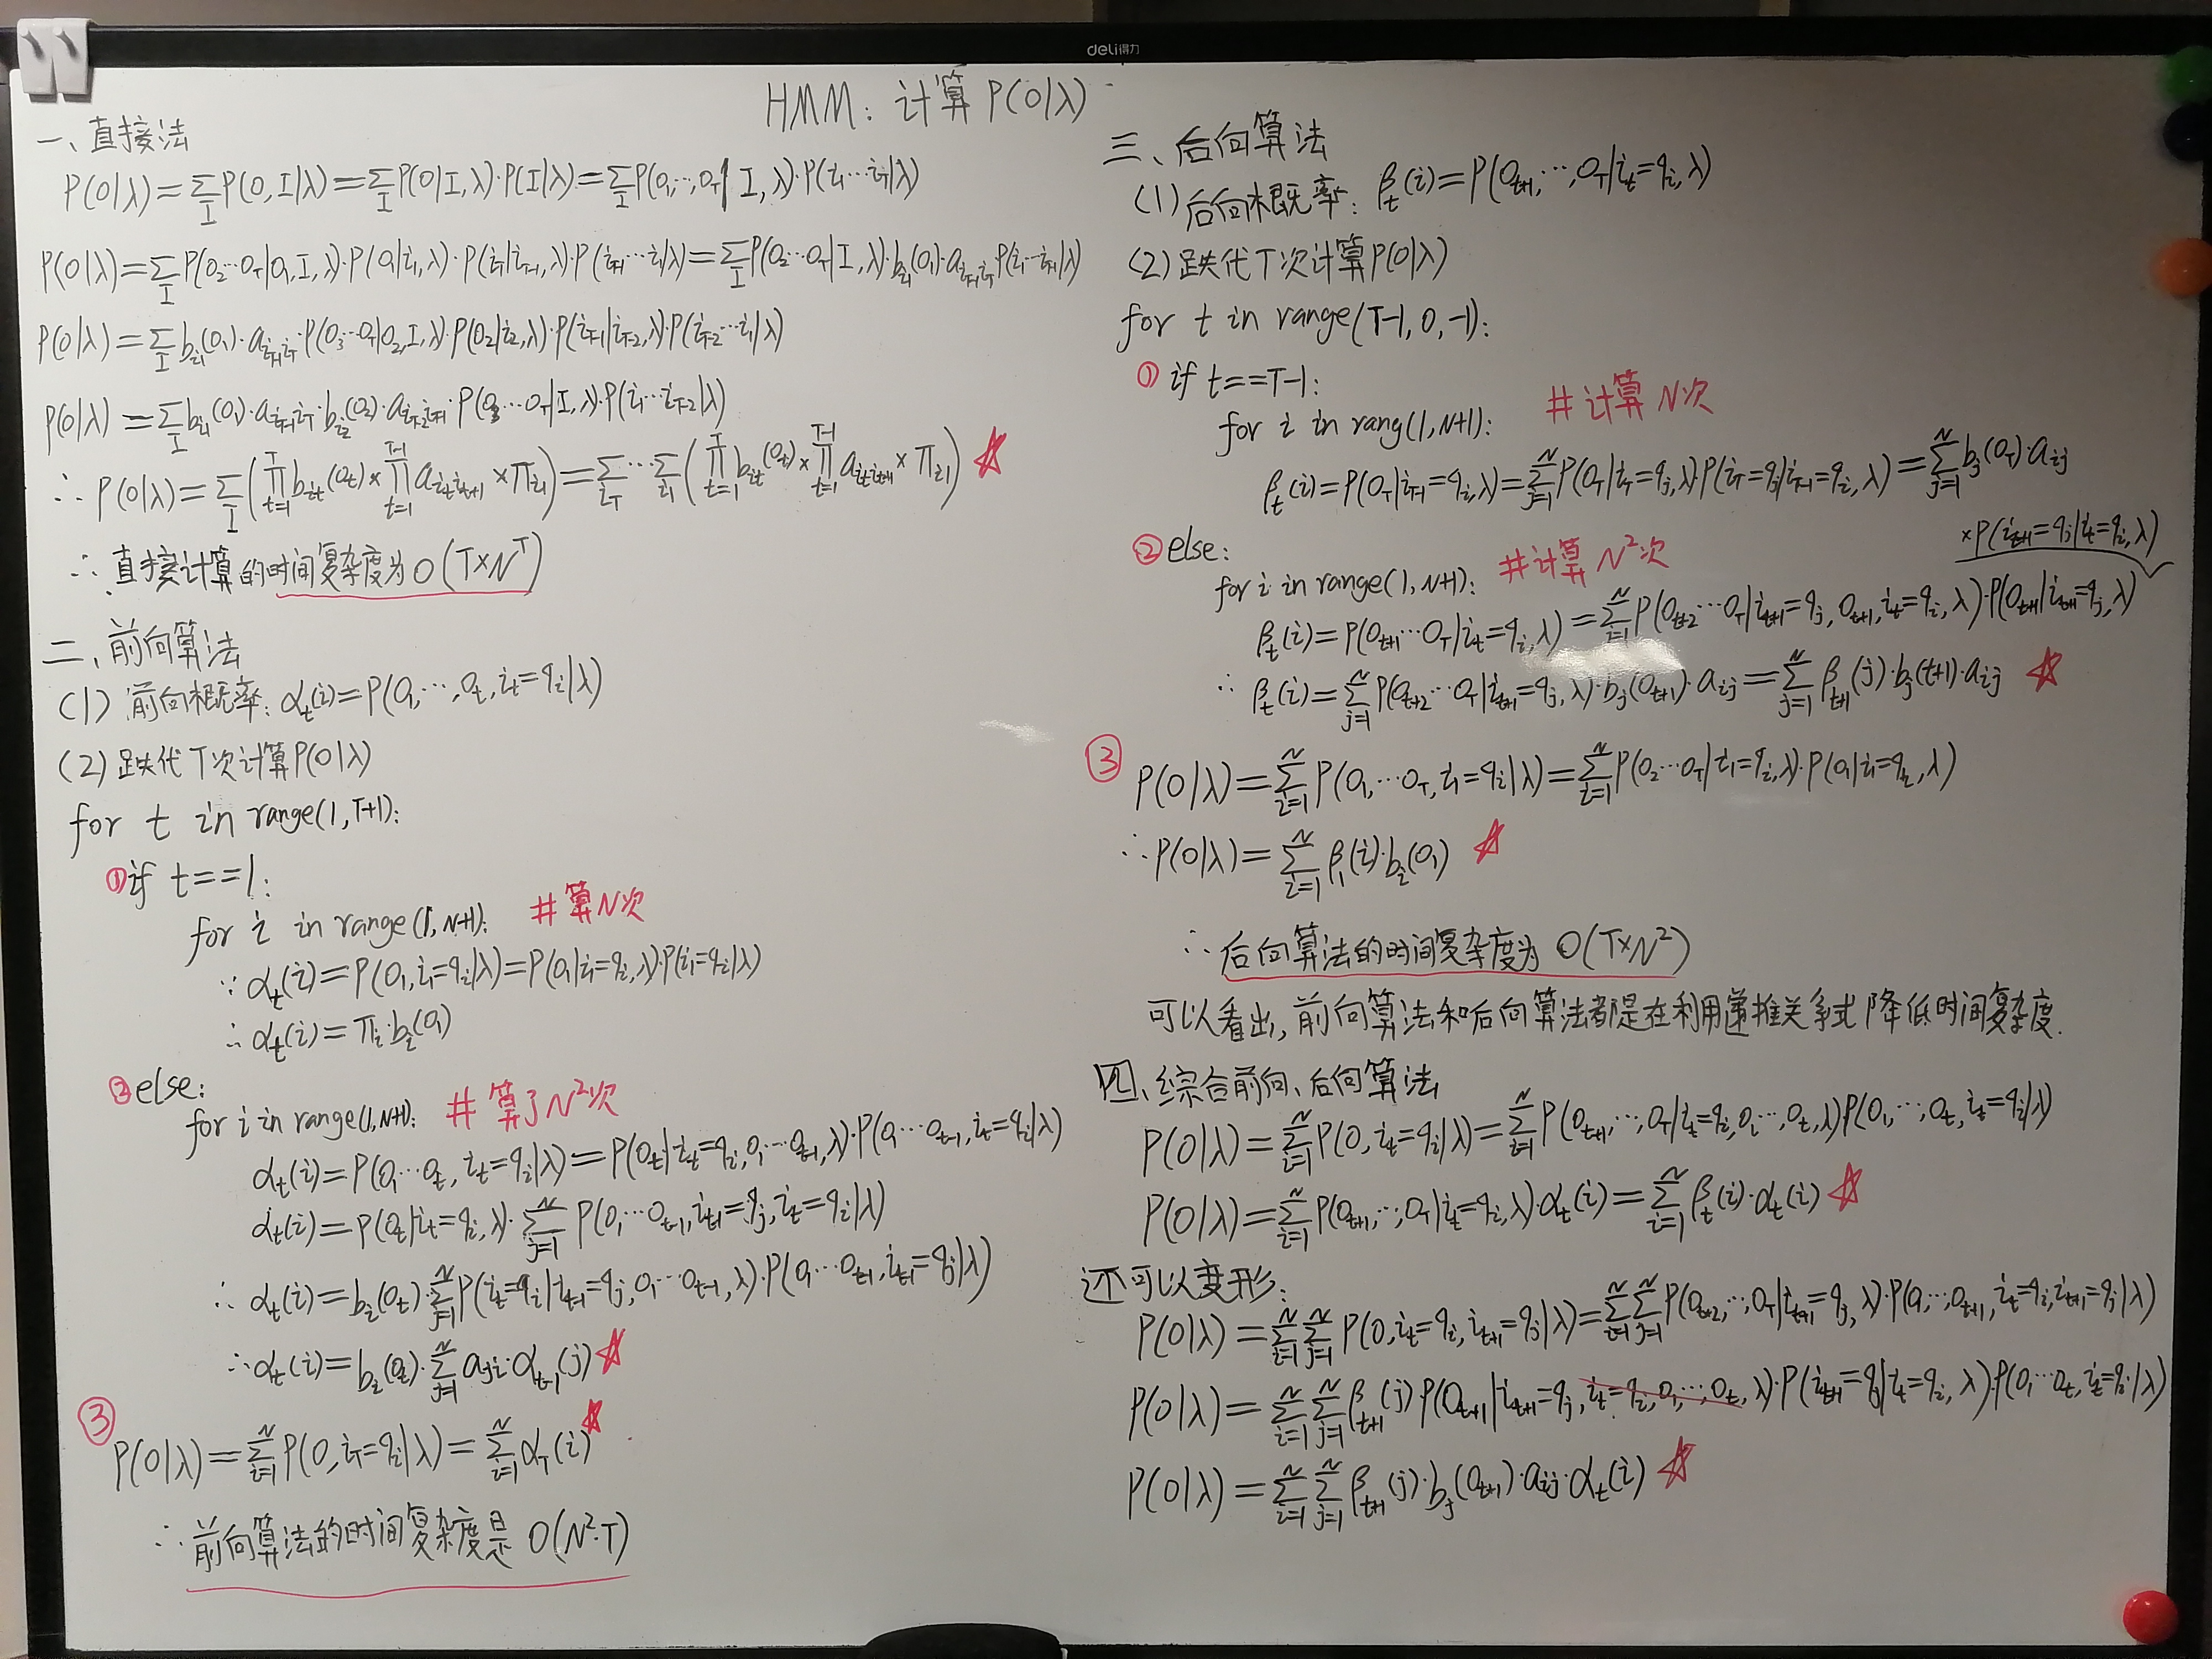 deli得力
HMM: 计算 P(O|λ)
一、直接法
P(O|λ)=∑_I P(O,I|λ)=∑_I P(O|I,λ)·P(I|λ)=∑_I P(O₁,…,O_T|I,λ)·P(i₁…i_T|λ)
P(O|λ)=∑_I P(O₂…O_T|O₁,I,λ)·P(O₁|i₁,λ)·P(i_T|i_{T-1},λ)·P(i_{T-1}…i₁|λ)=∑_I P(O₂…O_T|I,λ)·b_{i₁}(O₁)·a_{i_{T-1}i_T}·P(i₁…i_{T-1}|λ)
P(O|λ)=∑_I b_{i₁}(O₁)·a_{i_{T-1}i_T}·P(O₃…O_T|O₂,I,λ)·P(O₂|i₂,λ)·P(i_{T-1}|i_{T-2},λ)·P(i_{T-2}…i₁|λ)
P(O|λ)=∑_I b_{i₁}(O₁)·a_{i_{T-1}i_T}·b_{i₂}(O₂)·a_{i_{T-2}i_{T-1}}·P(O₃…O_T|I,λ)·P(i₁…i_{T-2}|λ)
∴ P(O|λ)=∑_I(∏_{t=1}^{T} b_{i_t}(O_t)×∏_{t=1}^{T-1} a_{i_t i_{t+1}}×π_{i₁})=∑_{i_T}…∑_{i₁}(∏_{t=1}^{T} b_{i_t}(O_t)×∏_{t=1}^{T-1} a_{i_t i_{t+1}}×π_{i₁}) ☆
∴直接计算的时间复杂度为O(T×N^T)
二、前向算法
(1) 前向概率: α_t(i)=P(O₁,…,O_t,i_t=q_i|λ)
(2)跌代T次计算P(O|λ)
for t in range(1,T+1):
①if t==1:
for i in range(1,N+1): #算N次
∵ α_t(i)=P(O₁,i₁=q_i|λ)=P(O₁|i₁=q_i,λ)·P(i₁=q_i|λ)
∴ α_t(i)=π_i·b_i(O₁)
②else:
for i in range(1,N+1): #算了N²次
α_t(i)=P(O₁…O_t,i_t=q_i|λ)=P(O_t|i_t=q_i,O₁…O_{t-1},λ)·P(O₁…O_{t-1},i_t=q_i|λ)
α_t(i)=P(O_t|i_t=q_i,λ)·∑_{j=1}^{N} P(O₁…O_{t-1},i_{t-1}=q_j,i_t=q_i|λ)
∴ α_t(i)=b_i(O_t)·∑_{j=1}^{N} P(i_t=q_i|i_{t-1}=q_j,O₁…O_{t-1},λ)·P(O₁…O_{t-1},i_{t-1}=q_j|λ)
∴ α_t(i)=b_i(O_t)·∑_{j=1}^{N} a_{ji}·α_{t-1}(j) ☆
③
P(O|λ)=∑_{i=1}^{N} P(O,i_T=q_i|λ)=∑_{i=1}^{N} α_T(i) ☆
∴前向算法的时间复杂度是 O(N²·T)
三、后向算法
(1)后向概率: β_t(i)=P(O_{t+1},…,O_T|i_t=q_i,λ)
(2)跌代T次计算P(O|λ)
for t in range(T-1,0,-1):
① if t==T-1:
for i in rang(1,N+1): #计算N次
β_t(i)=P(O_T|i_{T-1}=q_i,λ)=∑_{j=1}^{N} P(O_T|i_T=q_j,λ)·P(i_T=q_j|i_{T-1}=q_i,λ)=∑_{j=1}^{N} b_j(O_T)·a_{ij}
②else:
×P(i_{t+1}=q_j|i_t=q_i,λ)
for i in range(1,N+1): #计算N²次
β_t(i)=P(O_{t+1}…O_T|i_t=q_i,λ)=∑_{j=1}^{N} P(O_{t+2}…O_T|i_{t+1}=q_j,O_{t+1},i_t=q_i,λ)·P(O_{t+1}|i_{t+1}=q_j,λ)
∴ β_t(i)=∑_{j=1}^{N} P(O_{t+2}…O_T|i_{t+1}=q_j,λ)·b_j(O_{t+1})·a_{ij}=∑_{j=1}^{N} β_{t+1}(j)·b_j(t+1)·a_{ij} ☆
③
P(O|λ)=∑_{i=1}^{N} P(O₁,…O_T,i₁=q_i|λ)=∑_{i=1}^{N} P(O₂…O_T|i₁=q_i,λ)·P(O₁|i₁=q_i,λ)
∴P(O|λ)=∑_{i=1}^{N} β₁(i)·b_i(O₁) ☆
∴后向算法的时间复杂度为 O(T×N²)
可以看出,前向算法和后向算法都是在利用递推关系式降低时间复杂度.
四、综合前向、后向算法
P(O|λ)=∑_{i=1}^{N} P(O,i_t=q_i|λ)=∑_{i=1}^{N} P(O_{t+1},…,O_T|i_t=q_i,O₁…,O_t,λ)P(O₁,…,O_t,i_t=q_i|λ)
P(O|λ)=∑_{i=1}^{N} P(O_{t+1},…,O_T|i_t=q_i,λ)·α_t(i)=∑_{i=1}^{N} β_t(i)·α_t(i) ☆
还可以变形:
P(O|λ)=∑_{i=1}^{N}∑_{j=1}^{N} P(O,i_t=q_i,i_{t+1}=q_j|λ)=∑_{i=1}^{N}∑_{j=1}^{N} P(O_{t+2},…,O_T|i_{t+1}=q_j,λ)·P(O₁,…,O_{t+1},i_t=q_i,i_{t+1}=q_j|λ)
P(O|λ)=∑_{i=1}^{N}∑_{j=1}^{N} β_{t+1}(j)P(O_{t+1}|i_{t+1}=q_j,i_t=q_i,O₁,…,O_t,λ)·P(i_{t+1}=q_j|i_t=q_i,λ)·P(O₁…O_t,i_t=q_i|λ)
P(O|λ)=∑_{i=1}^{N}∑_{j=1}^{N} β_{t+1}(j)·b_j(O_{t+1})·a_{ij}·α_t(i) ☆